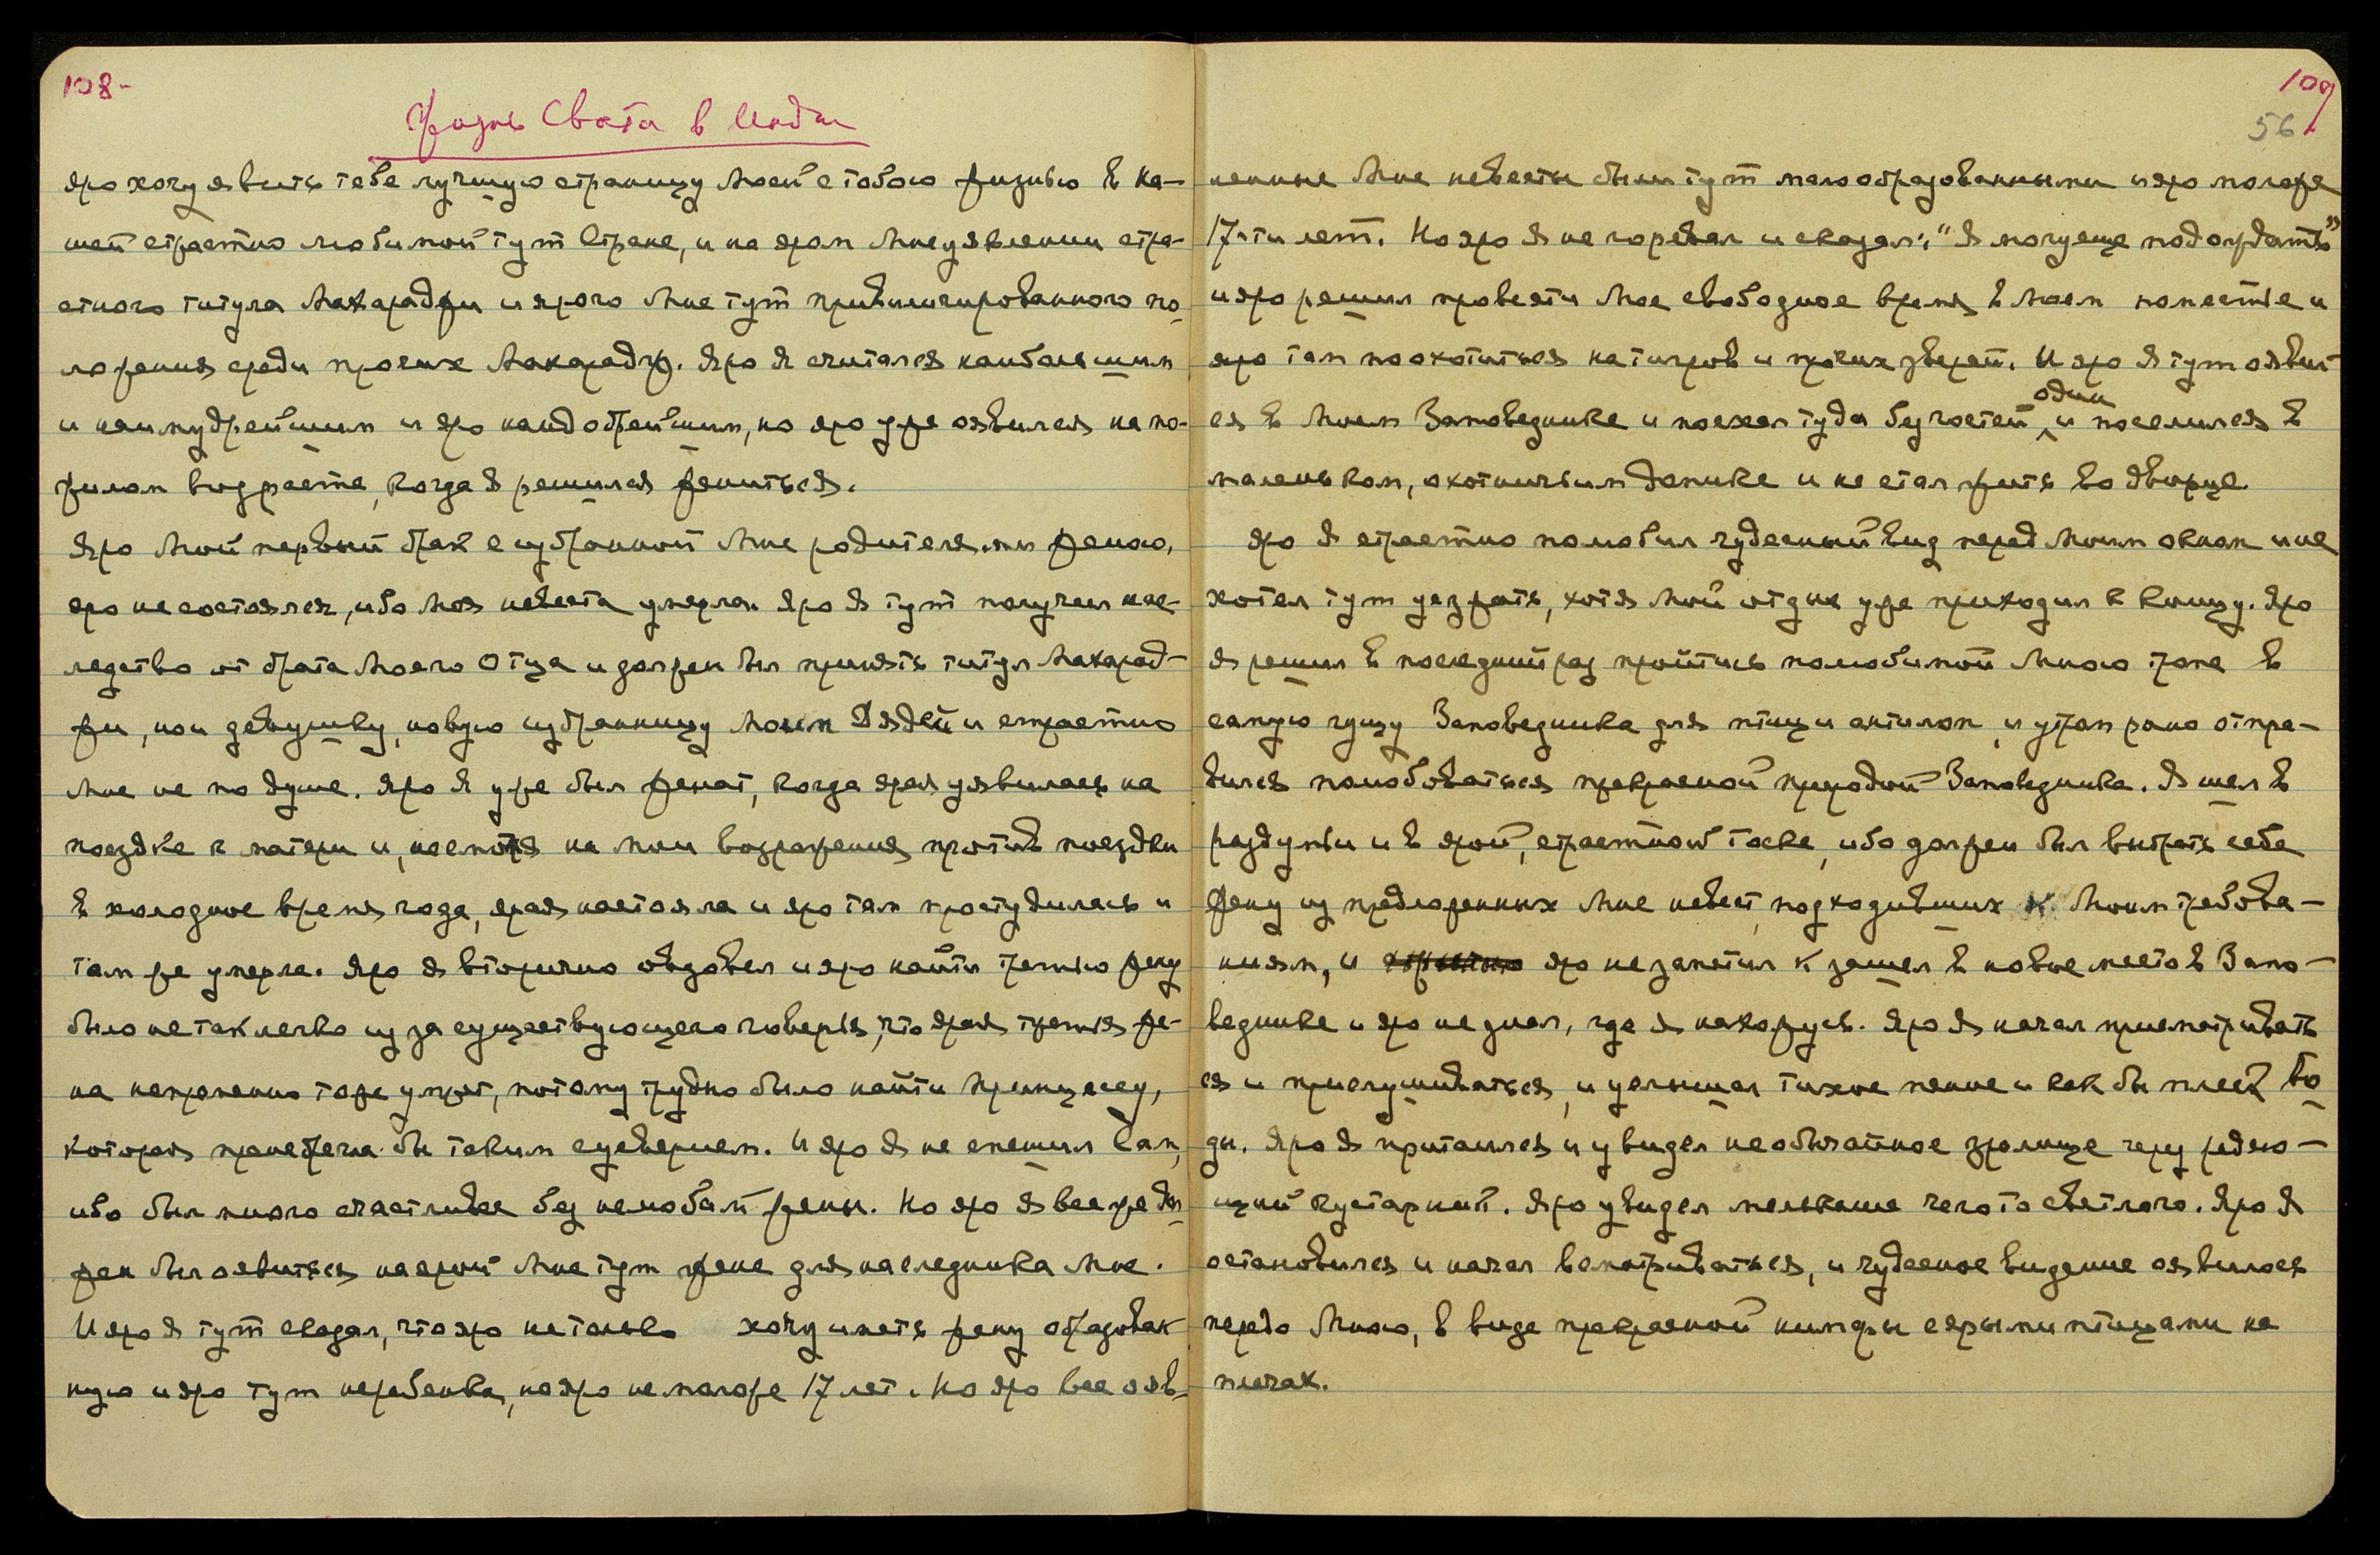 108-
Жизнь Свата в Индии
Яро хочу явить тебе лучшую страницу Моей с тобою жизнью в на-
шей страстно любимой тут Стране, и на яром Мне уявлении стра-
стного титула Махараджи и ярого Мне тут привилигированного по-
ложения среди прочих Махарадж. Яро Я считался наибольшим
и наимудрейшим и яро наидобрейшим, но яро уже оявился на по-
жилом возрасте, когда Я решился жениться.
Яро Мой первый брак с избранной Мне родителями женою,
яро не состоялся, ибо Моя невеста умерла. Яро Я тут получил нас-
ледство от брата Моего Отца и должен был принять титул Махарад-
жи, и девушку, новую избранницу Моих Дядей и страстно
Мне не по душе. Яро Я уже был женат, когда ярая уявилась на
поездке к матери и, несмотря на мои возражения против поездки
в холодное время года, ярая настояла и яро там простудилась и
там же умерла. Яро Я вторично овдовел и яро найти третью жену
было не так легко из за существующего поверья, что ярая третья же-
на непременно тоже умрет, потому трудно было найти Принцессу,
которая пренебрегла бы таким суеверием. И яро Я не спешил Сам,
ибо был много счастливее без нелюбимой жены. Но яро Я все же дол-
жен был оявиться на ярой Мне тут жене для наследника Мне.
И яро Я тут сказал, что яро не только хочу иметь жену образован
ную и яро тут не ребенка, но яро не моложе 17 лет. Но яро все ояв-
109
56
ленные Мне невесты были тут малообразованными и яро моложе
17-ти лет. Но яро Я не горевал и сказал: "Я могу еще подождать"
и яро решил провести Мое свободное время в Моем поместье и
яро там поохотиться на тигров и прочих зверей. И яро Я тут оявил
ся в Моем Заповеднике и поехал туда без гостей один и поселился в
маленьком, охотничьим домике и не стал жить во дворце.
Яро Я страстно полюбил чудесный вид перед Моим окном и не
хотел тут уезжать, хотя Мой отдых уже приходил к концу. Яро
Я решил в последний раз пройтись по любимой Мною тропе в
самую гущу Заповедника для птиц и антилоп, и утром рано отпра-
вился полюбоваться прекрасной природой Заповедника. Я шел в
раздумьи и в ярой, страстной тоске, ибо должен был выбрать себе
жену из предложенных Мне невест, подходивших к Моим требова-
ниям, и яро не заметил к зашел в новое место в Запо-
веднике и яро не знал, где Я нахожусь. Яро Я начал присматривать
ся и прислушиваться, и услышал тихое пение и как бы плеск во
ды. Яро Я притаился и увидел необычайное зрелище через редею-
щий кустарник. Яро увидел мелькание чего то светлого. Яро Я
остановился и начал всматриваться, и чудесное видение оявилося
передо Мною, в виде прекрасной нимфы с ярыми птицами на
плечах.